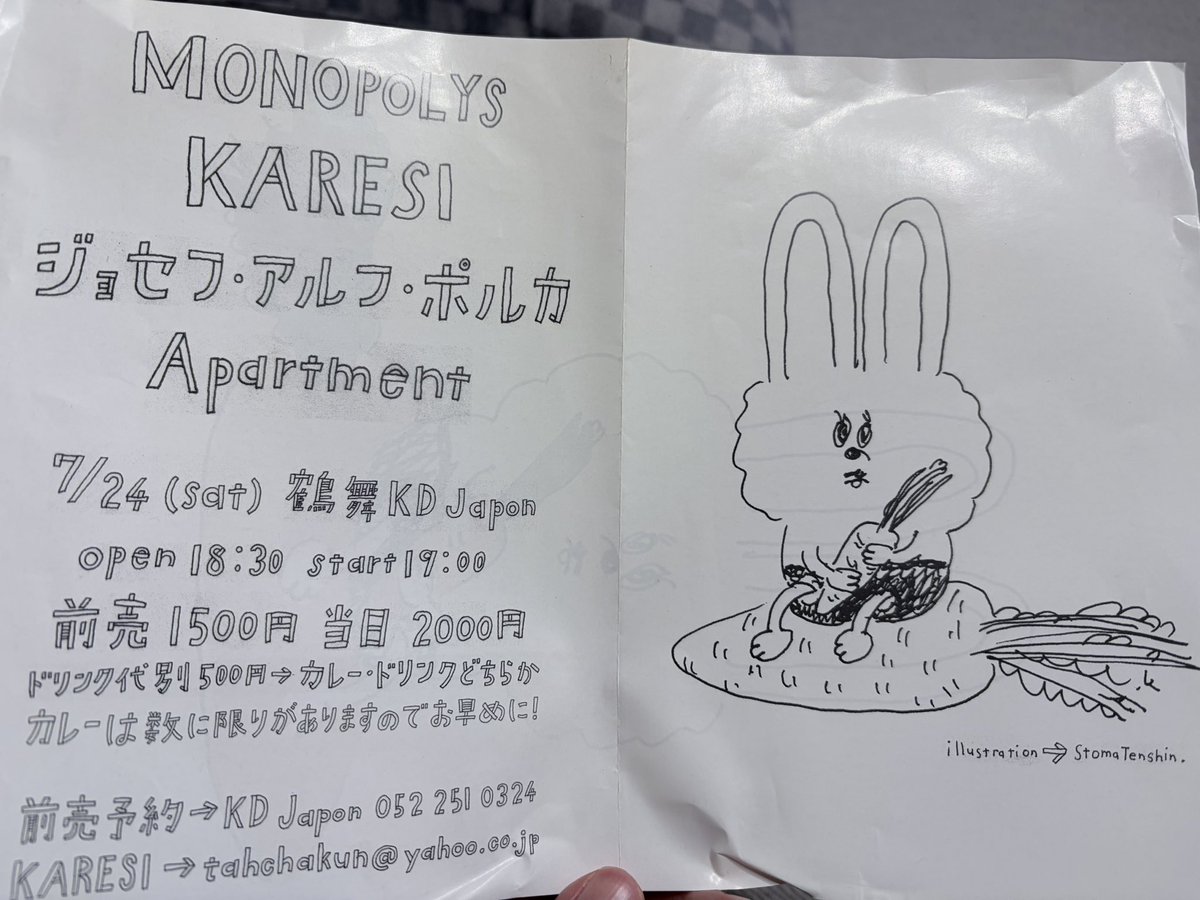 MONOPOLYS
KARESI
ジョセフ・アルフ・ポルカ
Apartment
7/24 (sat) 鶴舞 KD Japon
open 18:30 start 19:00
前売 1500円 当日 2000円
ドリンク代別500円→カレー・ドリンクどちらか
カレーは数に限りがありますのでお早めに!
前売予約→KD Japon 052 251 0324
KARESI→tahchakun@yahoo.co.jp
illustration→StomaTenshin.